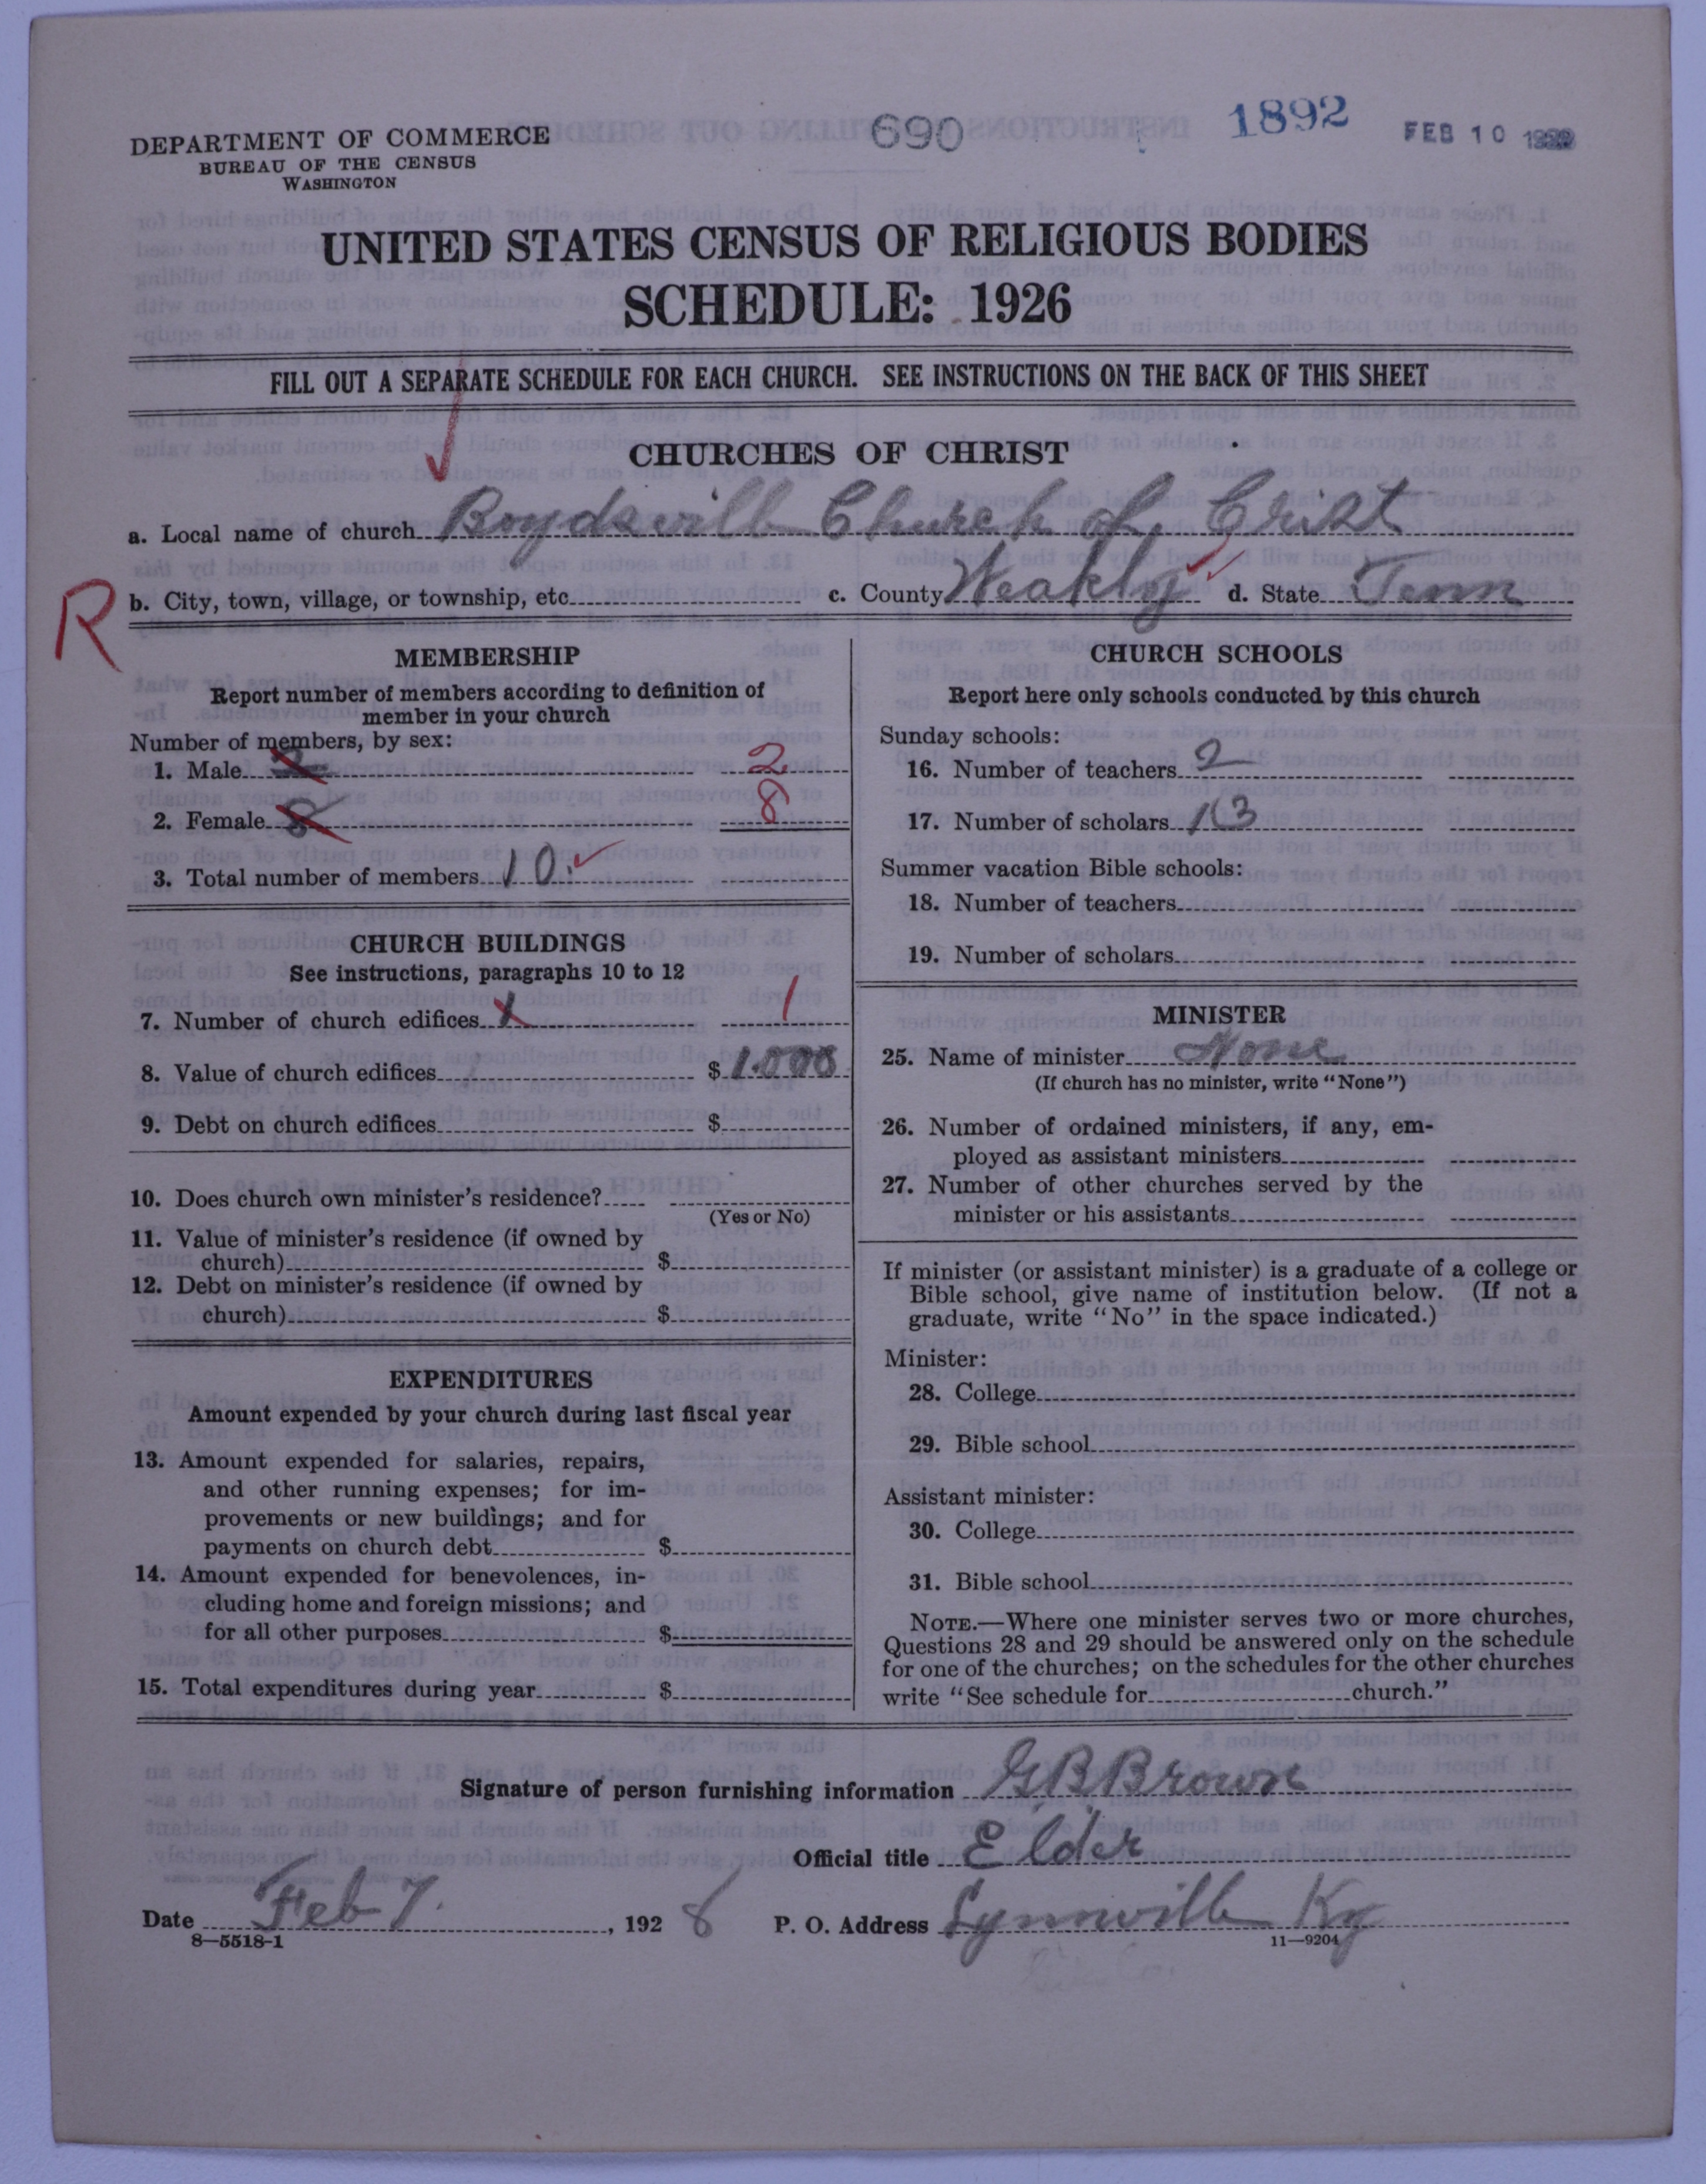 690
1892
FEB 10
DEPARTMENT OF COMMERCE
BUREAU OF THE CENSUS
WASHINGTON
UNITED STATES CENSUS OF RELIGIOUS BODIES
SCHEDULE: 1926
FILL OUT A SEPARATE SCHEDULE FOR EACH CHURCH. SEE INSTRUCTIONS ON THE BACK OF THIS SHEET
CHURCHES OF CHRIST
a. Local name of church Boydsvill Church of Christ
R
b. City, town, village, or township, etc. c. County Weakly d. State Tenn
MEMBERSHIP
Report number of members according to definition of
member in your church
Number of members, by sex:
1. Male 2 2
2. Female 8 8
3. Total number of members 10
CHURCH BUILDINGS
See instructions, paragraphs 10 to 12
7. Number of church edifices 1 1
8. Value of church edifices $ 1.000
9. Debt on church edifices $
10. Does church own minister's residence?
(Yes or No)
11. Value of minister's residence (if owned by
church) $
12. Debt on minister's residence (if owned by
church) $
EXPENDITURES
Amount expended by your church during last fiscal year
13. Amount expended for salaries, repairs,
and other running expenses; for im-
provements or new buildings; and for
payments on church debt $
14. Amount expended for benevolences, in-
cluding home and foreign missions; and
for all other purposes $
15. Total expenditures during year $
CHURCH SCHOOLS
Report here only schools conducted by this church
Sunday schools:
16. Number of teachers 2
17. Number of scholars
Summer vacation Bible schools:
18. Number of teachers
19. Number of scholars
MINISTER
25. Name of minister None
(If church has no minister, write "None")
26. Number of ordained ministers, if any, em-
ployed as assistant ministers
27. Number of other churches served by the
minister or his assistants
If minister (or assistant minister) is a graduate of a college or
Bible school, give name of institution below. (If not a
graduate, write "No" in the space indicated.)
Minister:
28. College
29. Bible school
Assistant minister:
30. College
31. Bible school
NOTE.—Where one minister serves two or more churches,
Questions 28 and 29 should be answered only on the schedule
for one of the churches; on the schedules for the other churches
write "See schedule for church."
Signature of person furnishing information G B Brown
Official title Elder
Date Feb 7. , 1928 P. O. Address Lynnvill Ky
8—5518-1
11—9204